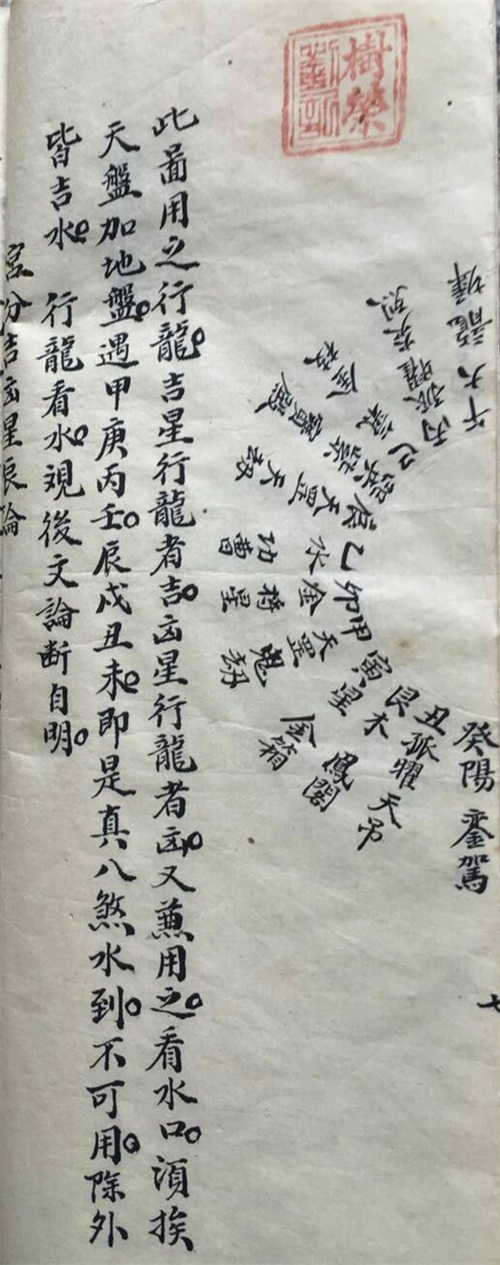 樹榮
癸陽 鑾駕
丑孤曜 天吊
艮木 鳳閣
寅星 金箱
甲天罡 鬼劫
卯金 將星
乙水 功曹
辰天罡
寶殿
巳
丙孤曜
午太龍
七
此啚用之行龍。吉星行龍者吉。凶星行龍者凶。又兼用之。看水口。須挨
天盤加地盤。遇甲庚丙壬。辰戌丑未。即是真八煞水到。不可用。除外
皆吉水。行龍看水。覌後文論斷自明。
宮分吉凶星辰論